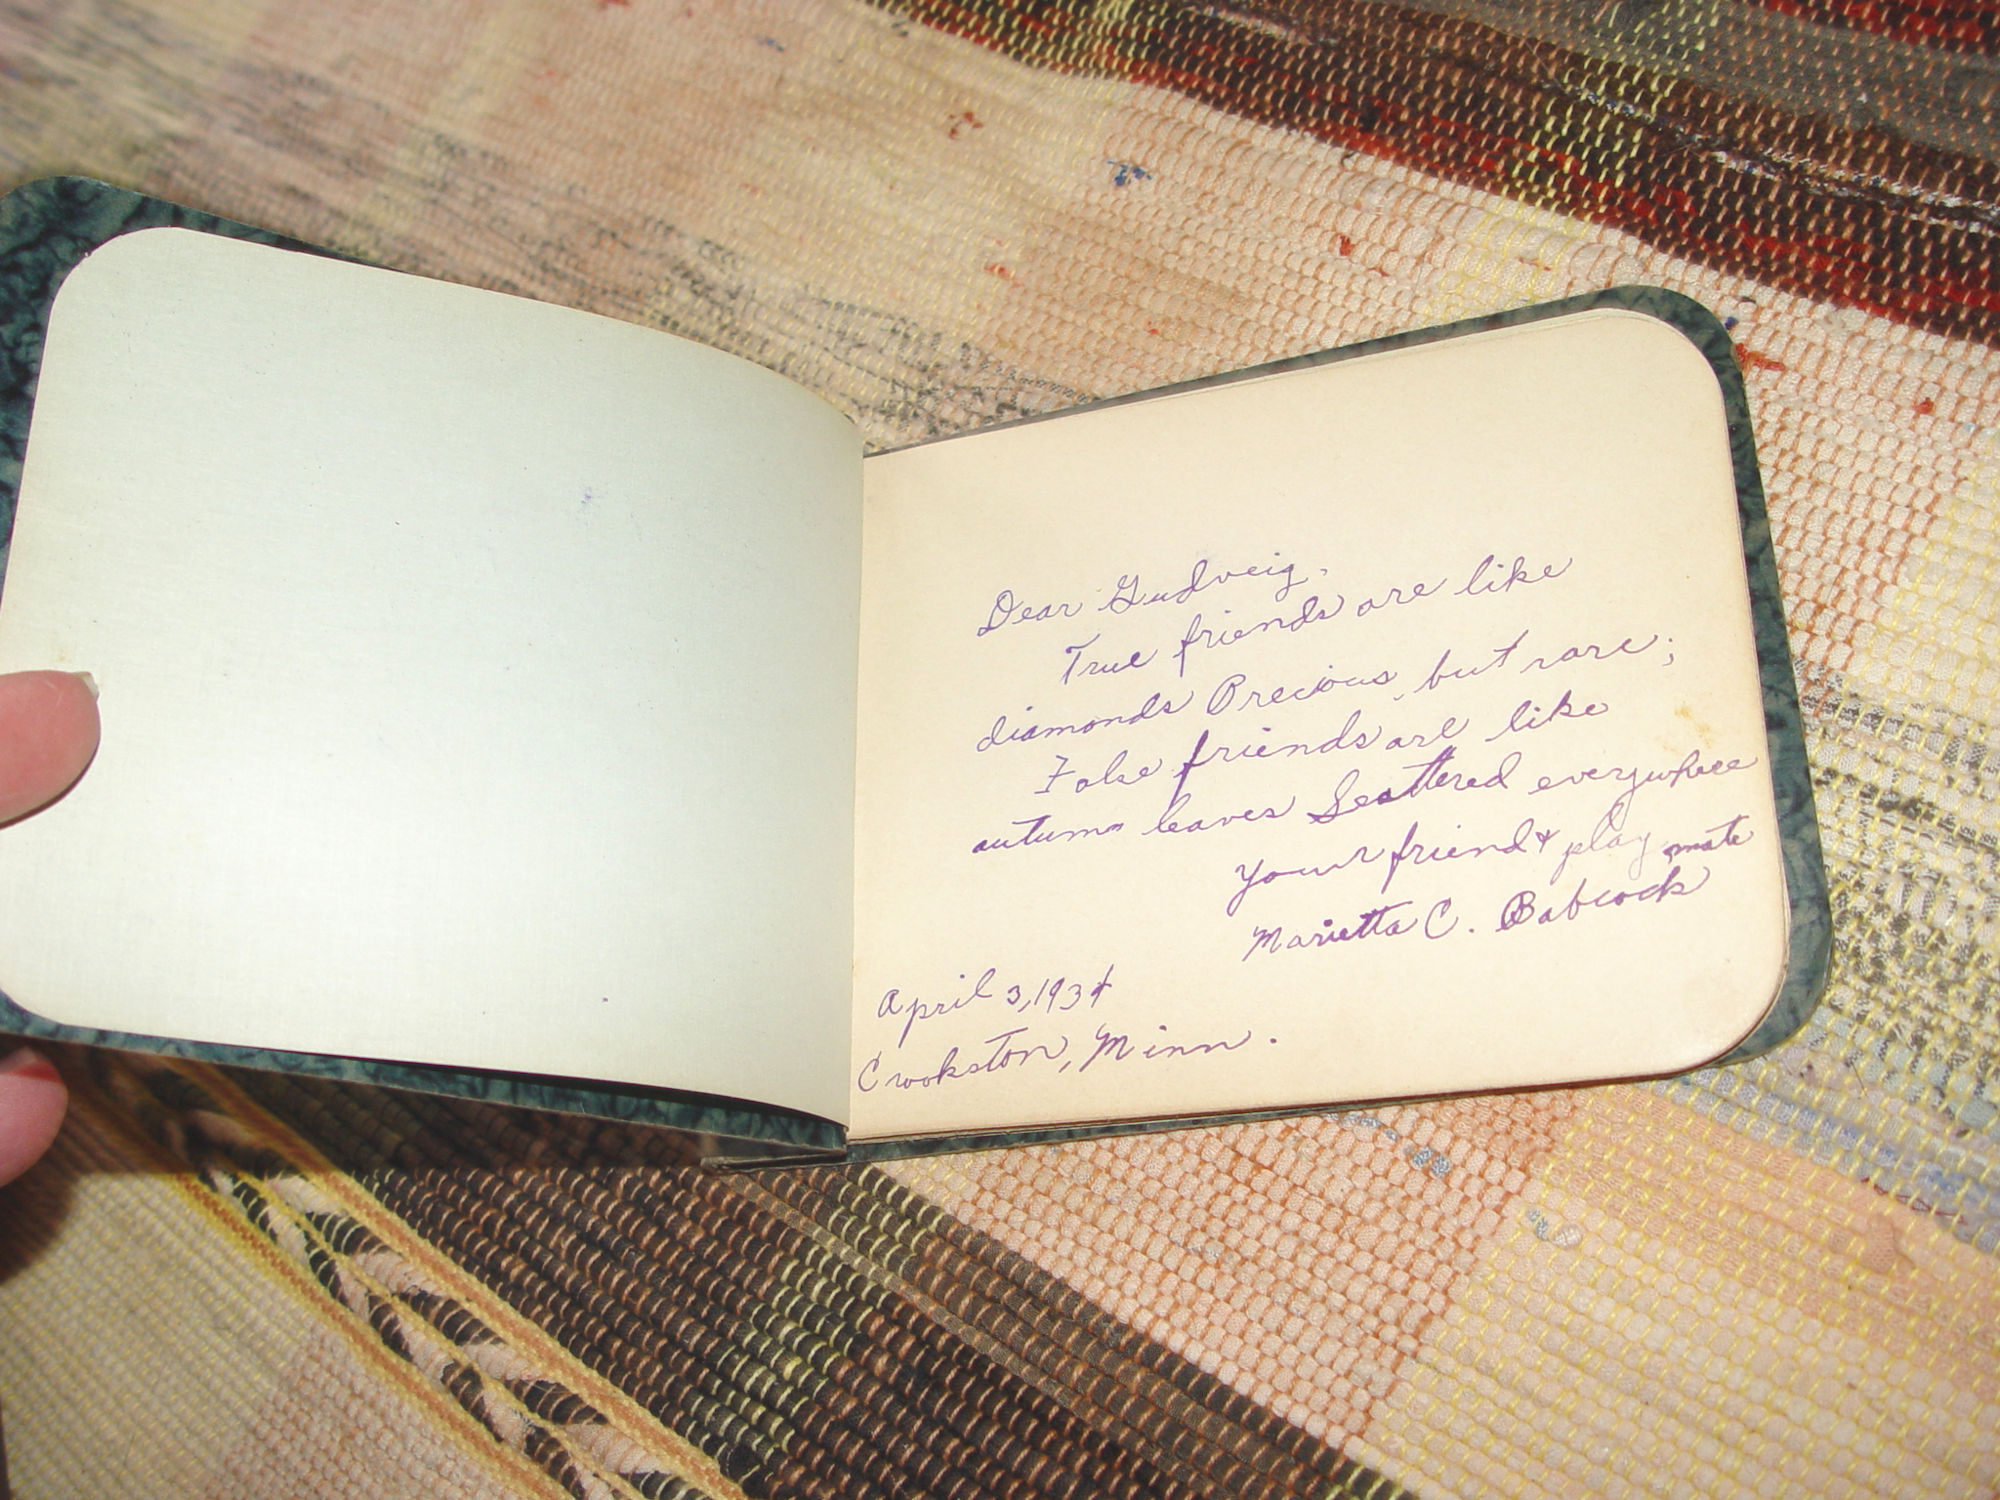 Dear Gudveig,
True friends are like
diamonds Precious, but rare;
False friends are like
autumn leaves Scattered everywhere
Your friend & play mate
Marietta C. Babcock
April 3, 1934
Crookston, Minn.